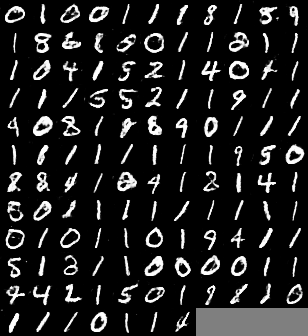 0 1 0 0 1 1 1 8 1 8 9
1 8 6 1 0 1 1 8 1 1
1 0 4 1 5 2 1 4 0 1
1 1 1 5 5 2 1 1 9 1 1
9 0 8 1 8 8 9 0 1 1 1
1 1 1 1 1 1 1 1 9 5 0
8 8 1 8 9 1 2 1 4 1
0 1 1 1 1 1 1 1 1
0 1 0 1 1 0 1 9 4 1 1
5 1 1 1 0 0 0 0 1 1
4 2 1 5 0 1 9 8 1 0
1 1 1 0 1 1